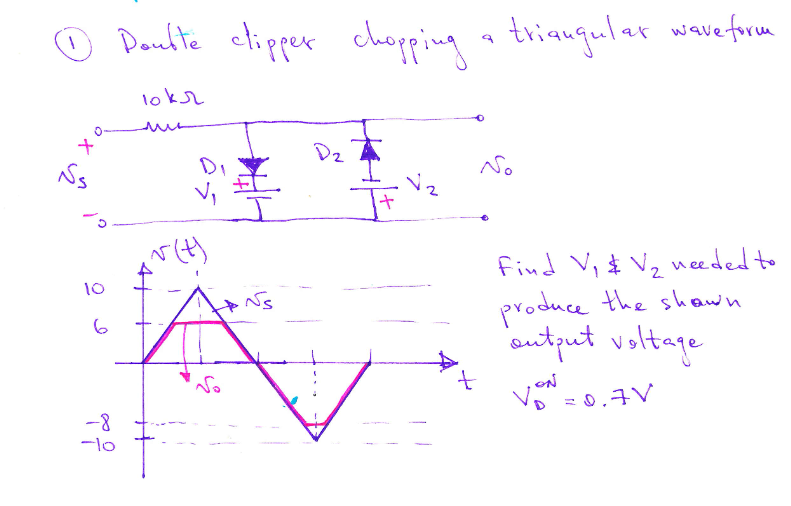 ① Double clipper chopping a triangular waveform
10kΩ
+
D1
D2
Vs
V1
+
V2
+
Vo
-
v(t)
10
Vs
6
Vo
t
-8
-10
Find V1 & V2 needed to
produce the shown
output voltage
V_D^ON = 0.7V